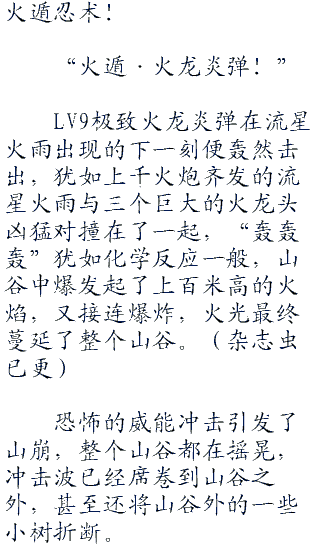 火遁忍术！
“火遁·火龙炎弹！”
LV9极致火龙炎弹在流星
火雨出现的下一刻便轰然击
出，犹如上千火炮齐发的流
星火雨与三个巨大的火龙头
凶猛对撞在了一起，“轰轰
轰”犹如化学反应一般，山
谷中爆发起了上百米高的火
焰，又接连爆炸，火光最终
蔓延了整个山谷。（杂志虫
已更）
恐怖的威能冲击引发了
山崩，整个山谷都在摇晃，
冲击波已经席卷到山谷之
外，甚至还将山谷外的一些
小树折断。